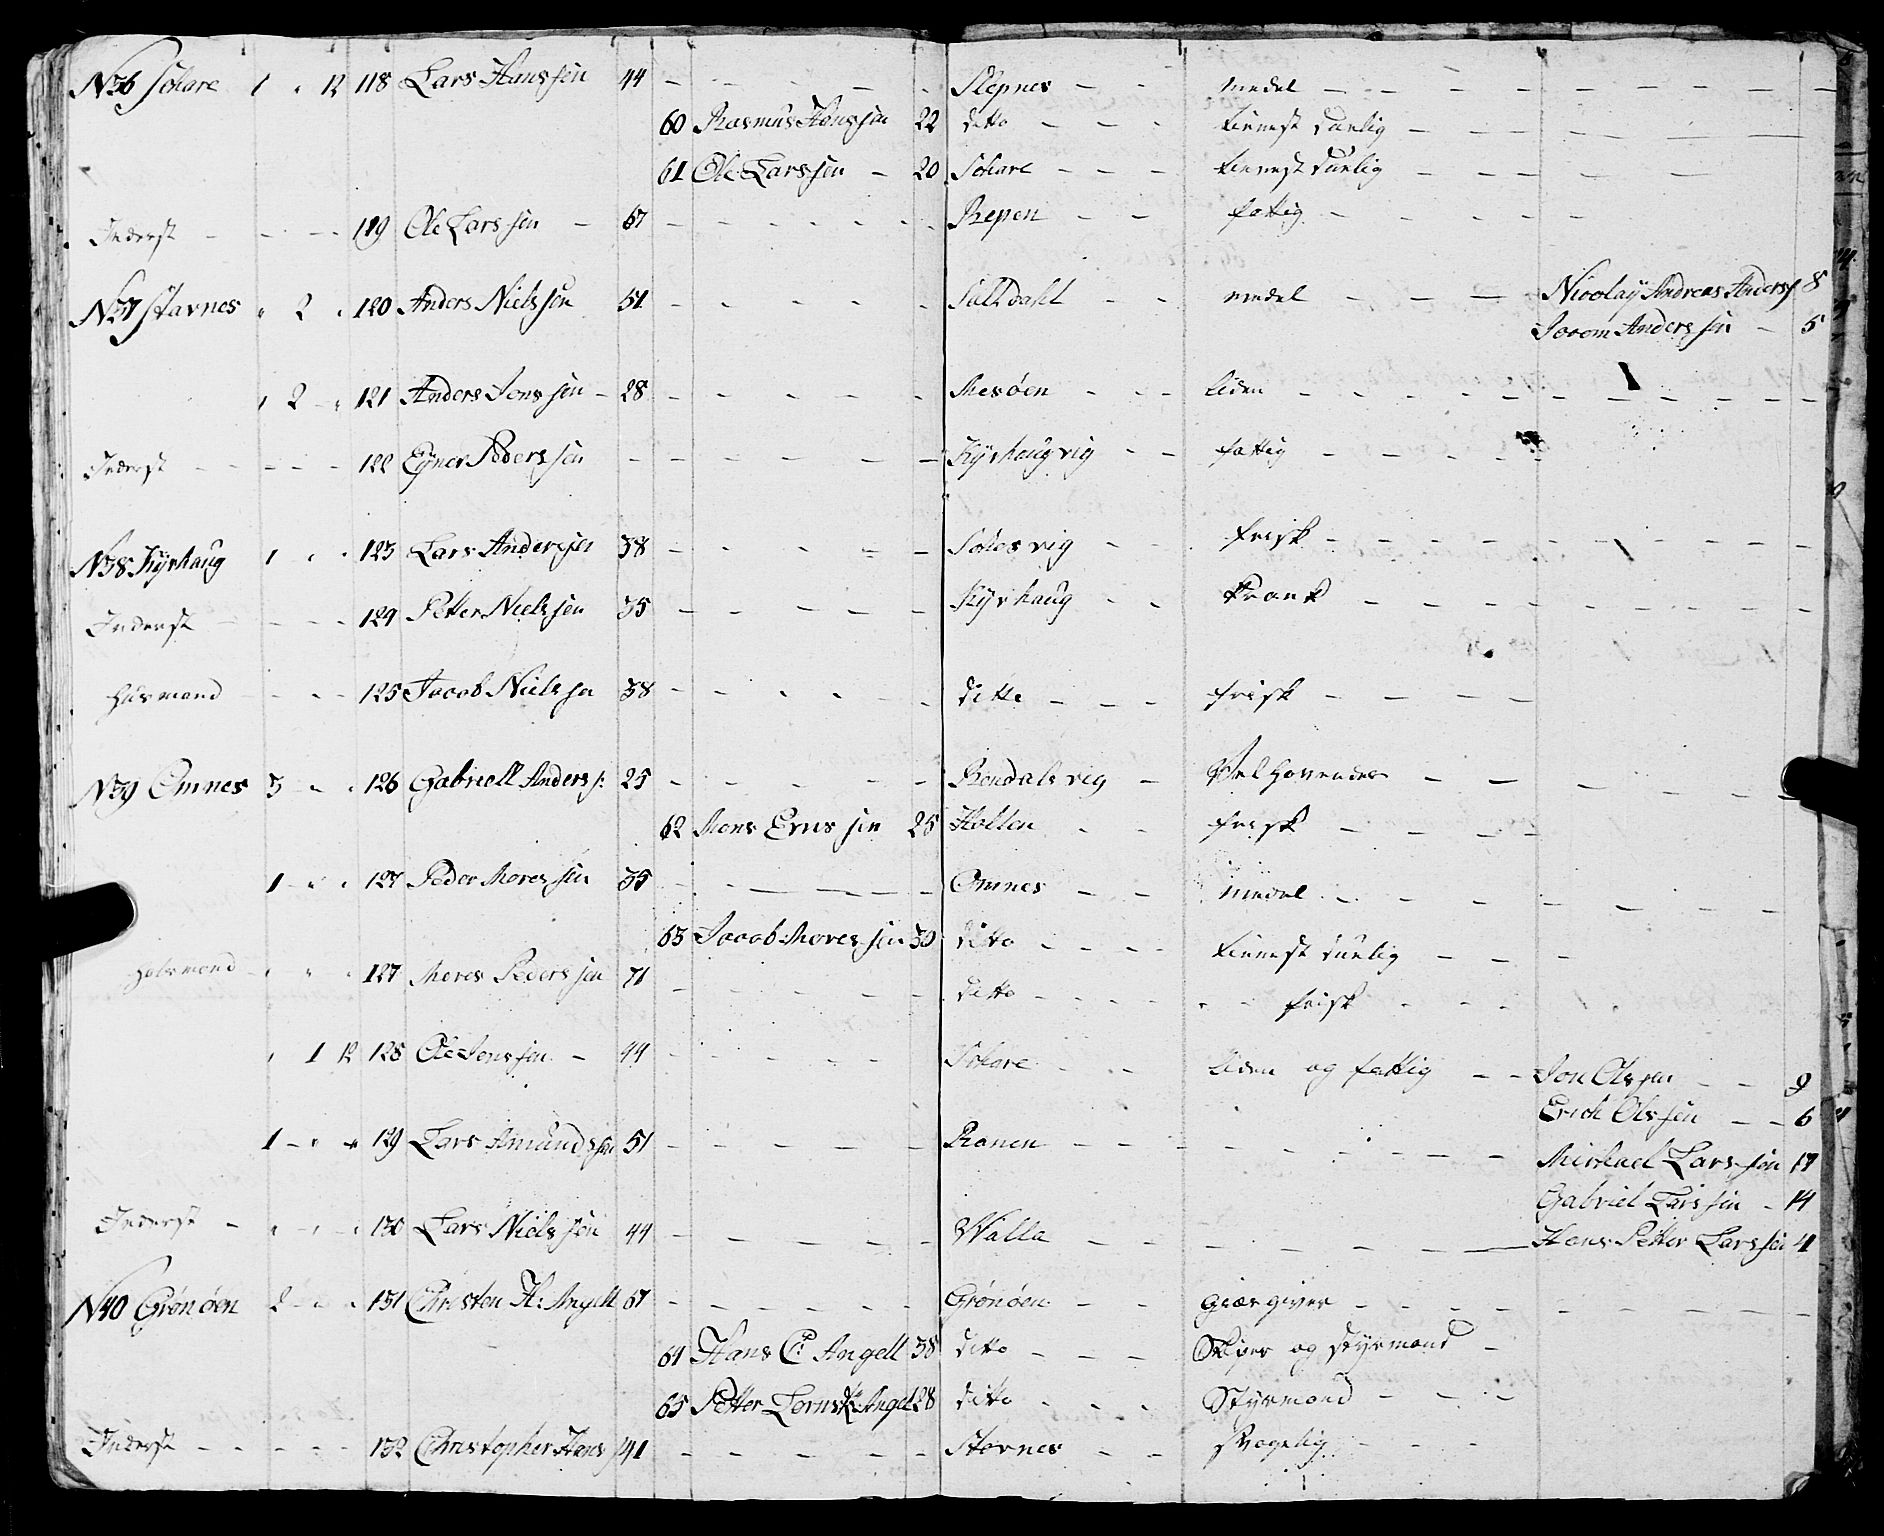 N36 Sohare 1 " 12 118 Lars Hanssøn 44 Slepnes medel
60 Rasmus Hanssøn 22 ditto tienest duelig
61 Ole Larssøn 20 Sohare tienest duelig
Inderst 119 Ole Larssøn 67 Repen fattig
N37 Stavnes " 2 " 120 Anders Nielssøn 51 Saltdahl medel Nicolaÿ Andreas Anders 8
Anderssøn 5
" 2 " 121 Anders Jonssøn 28 Mesøen liden
Inderst 122 Eÿner Pederssøn Kÿrhaugvig fattig
N38 Kÿrhaug 1 " " 123 Lars Anderssøn 38 Sohesvig frisk
Inderst 124 Petter Nielssøn 35 Kÿrhaug Krank
Husmand 125 Jacob Nielssøn 38 ditto frisk
N39 Omnes 3 " " 126 Gabriell Anders s: 25 Rendalsvig Velhavende
62 Mons 25 Holten frisk
1 " " 127 Peder Moressøn 35 Omnes medel
63 Jacob Moressøn 30 ditto tienest duelig
127 Mores Pederssøn 71 ditto frisk
" 1 12 128 Ole Jenssøn 44 Sohare liden og fattig Jon Olssøn 9
Erich Olssøn 6
1 " 129 Lars Amundssøn 51 Ranen Michael Larssøn 17
Gabriel Larssøn 14
Inderst 130 Lars Nielssøn 44 Walla Hans Petter Larssøn 4
N40 Grønøen 2 " " 131 Christen H: Angell 67 Grønøen giæsgiver
64 Hans C: Angell 38 ditto Skiper og Styrmand
65 Petter Angel 28 ditto Styrmand
Inderst 132 Christopher Hans 41 Stavnes svagelig